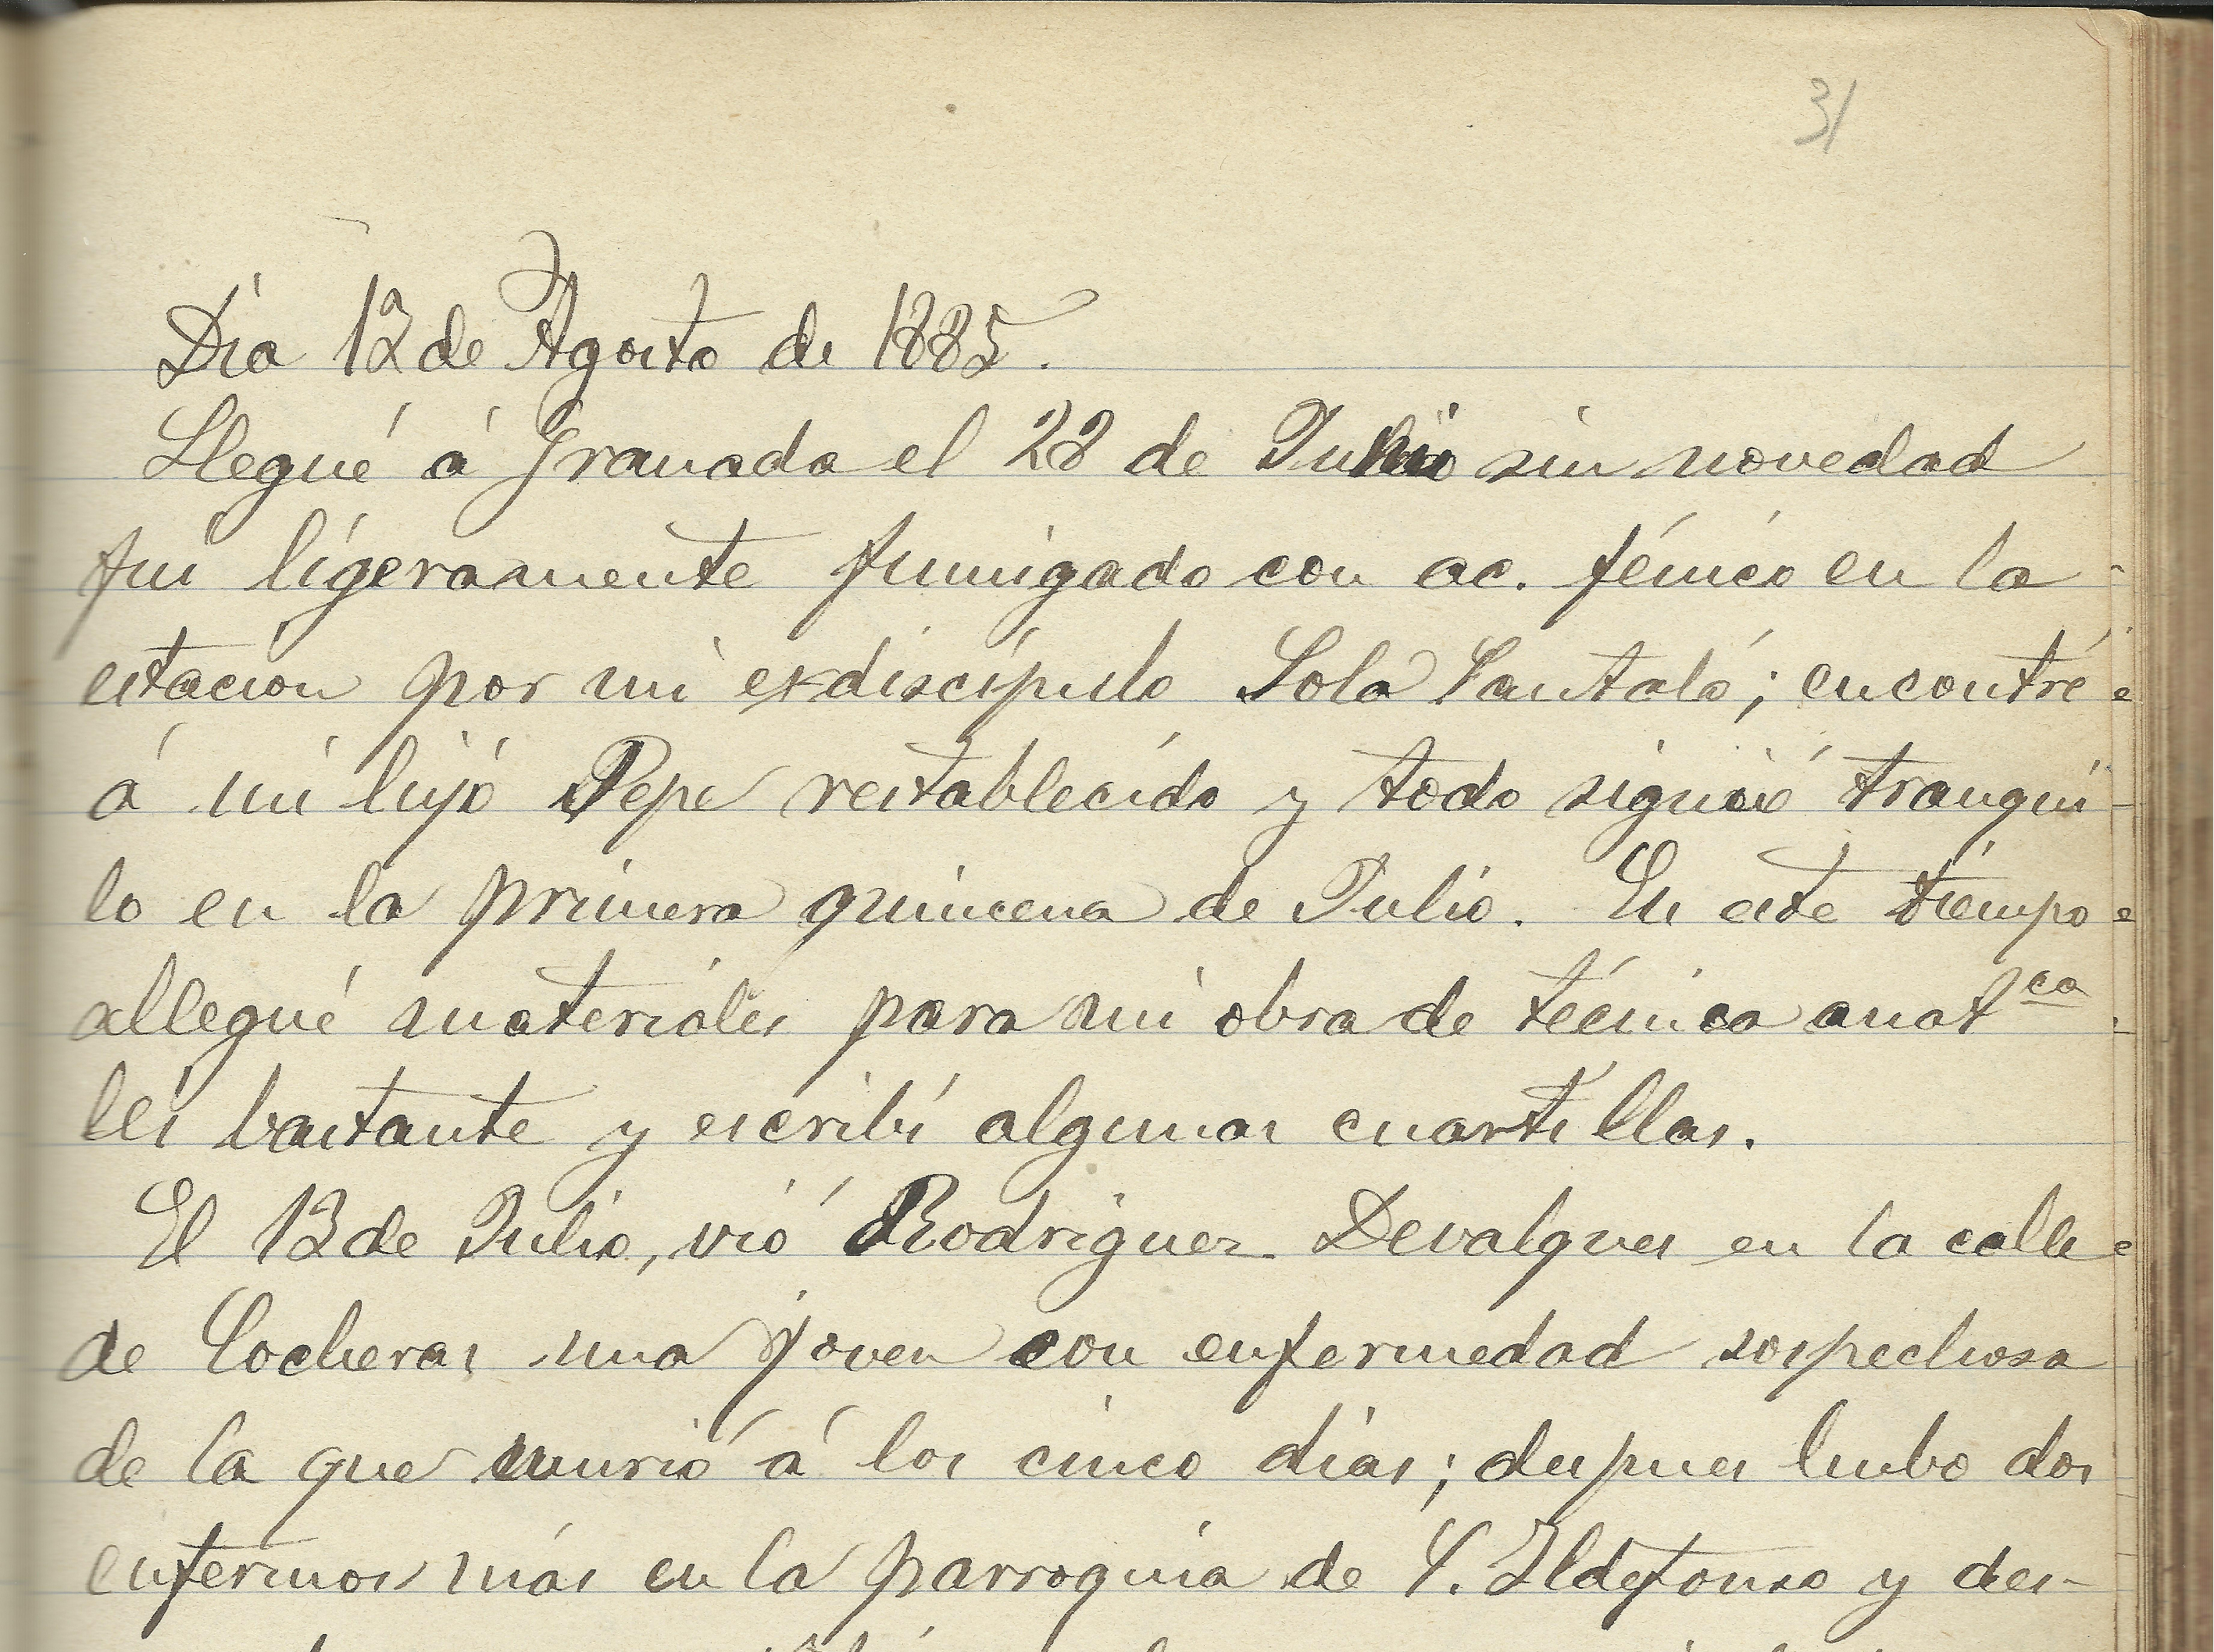 31
Dia 12 de Agosto de 1885.
Llegué á Granada el 28 de Junio sin novedad
fui ligeramente fumigado con ac. fénico en la
estacion por mi exdiscipulo Solá Santaló; encontré
á mi hijo Pepe restablecido y todo siguió tranqui-
lo en la primera quincena de Julio. En este tiempo
allegué materiales para mi obra de técnica anatca
leí bastante y escribí algunas cuartillas.
El 13 de Julio, vió Rodriguez Devalques en la calle
de Cocheras una joven con enfermedad sospechosa
de la que murió á los cinco dias; despues hubo dos
enfermos más en la parroquia de S. Ildefonso y des-